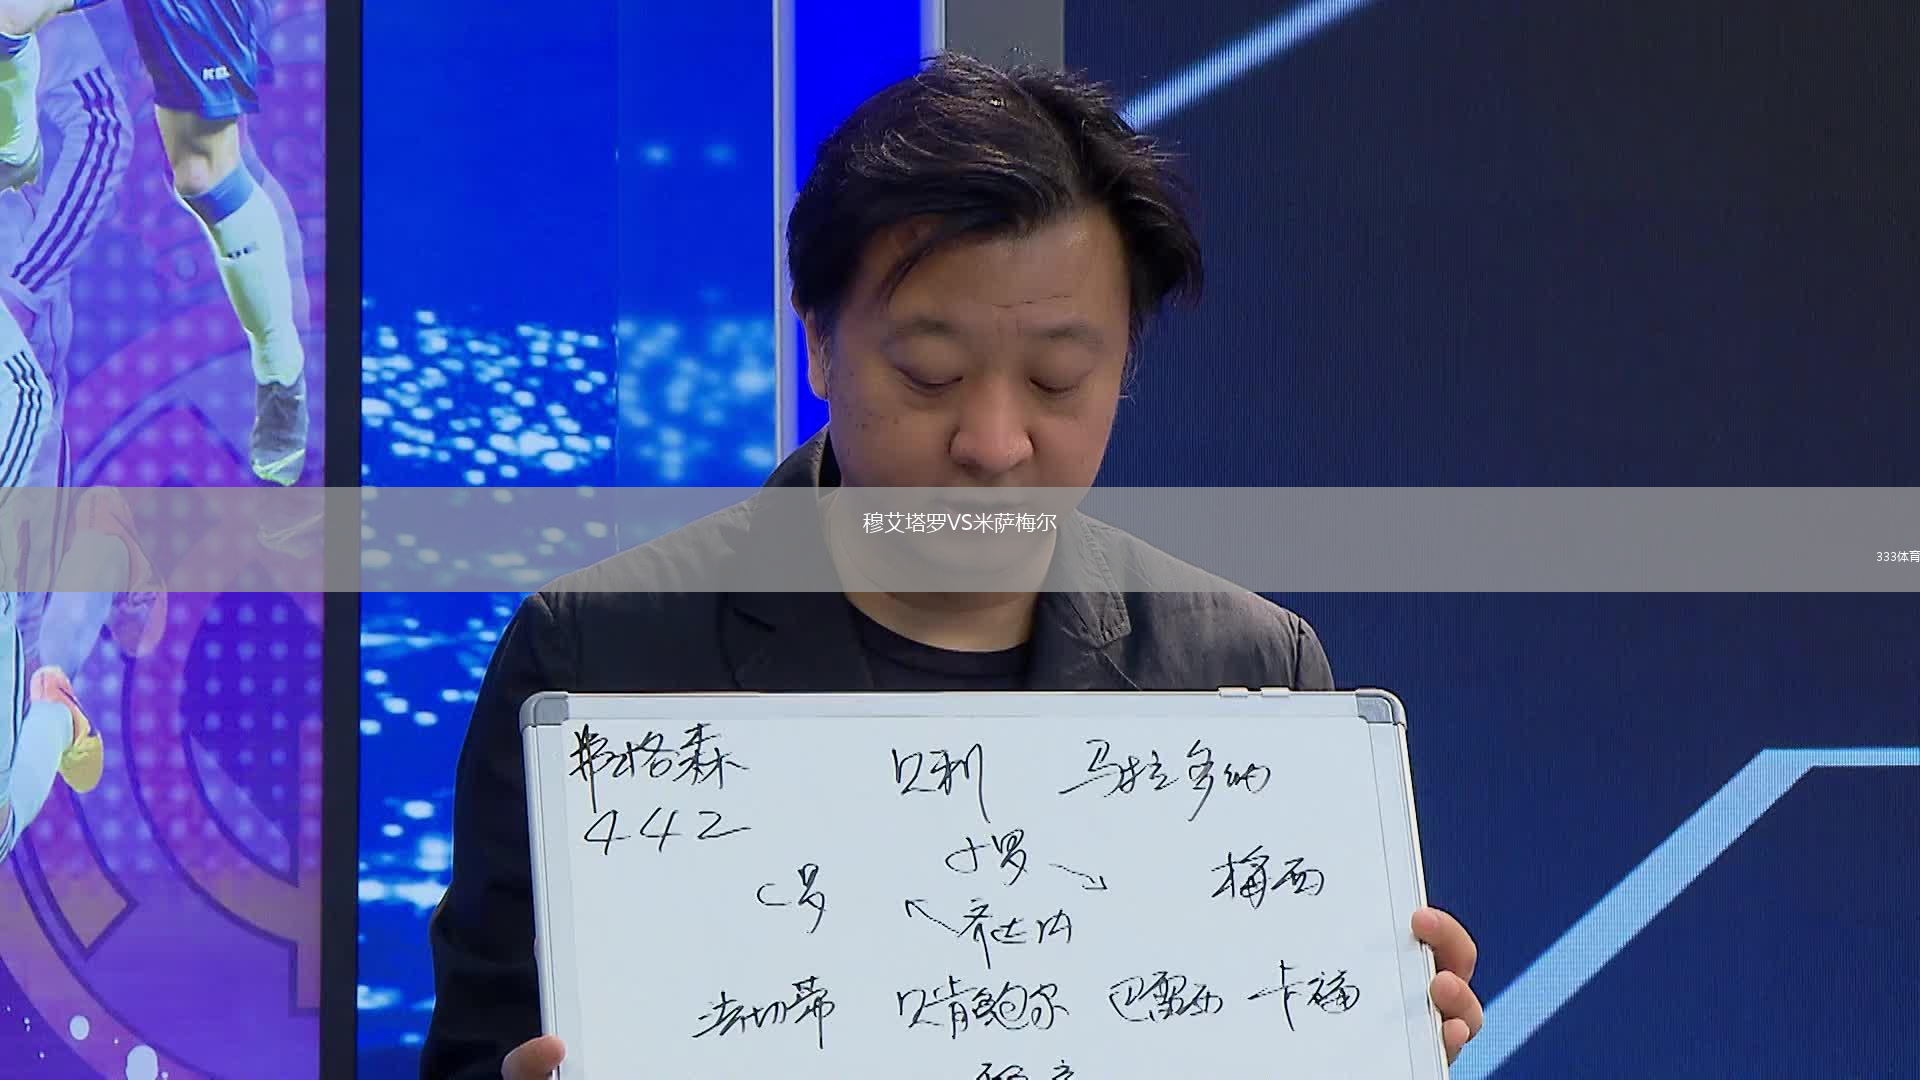 KE
穆艾塔罗VS米萨梅尔
333体育
弗格森 贝利 马拉多纳
442
小罗
C罗 梅西
齐达内
法切蒂 贝肯鲍尔 巴雷西 卡福